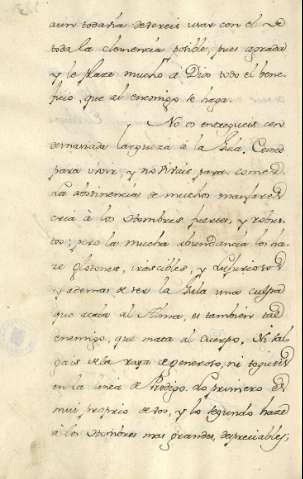 aun todavia devereis usar con el de
toda la clemencia posible, pues agrada
y le place mucho à Dios todo el bene-
ficio, que al enemigo se haga.
No os entregueis con
demasiada largueza à la Gula. Comed
para vivir, y no vivais para comer.
La abstinencia de muchos manjares
cria à los Hombres fuertes, y robus-
tos; pero la mucha abundancia los ha-
ce glotones, irascibles, y
y ademas de ser la Gula una culpa
que acaba al Alma, es tambien tal
enemigo, que mata al cuerpo. No sal-
gais de la raya de generoso, ni toqueis
en la linea de Prodigo. Lo primero es
mui proprio de vos, y lo segundo hace
à los Hombres mas grandes, despreciables,